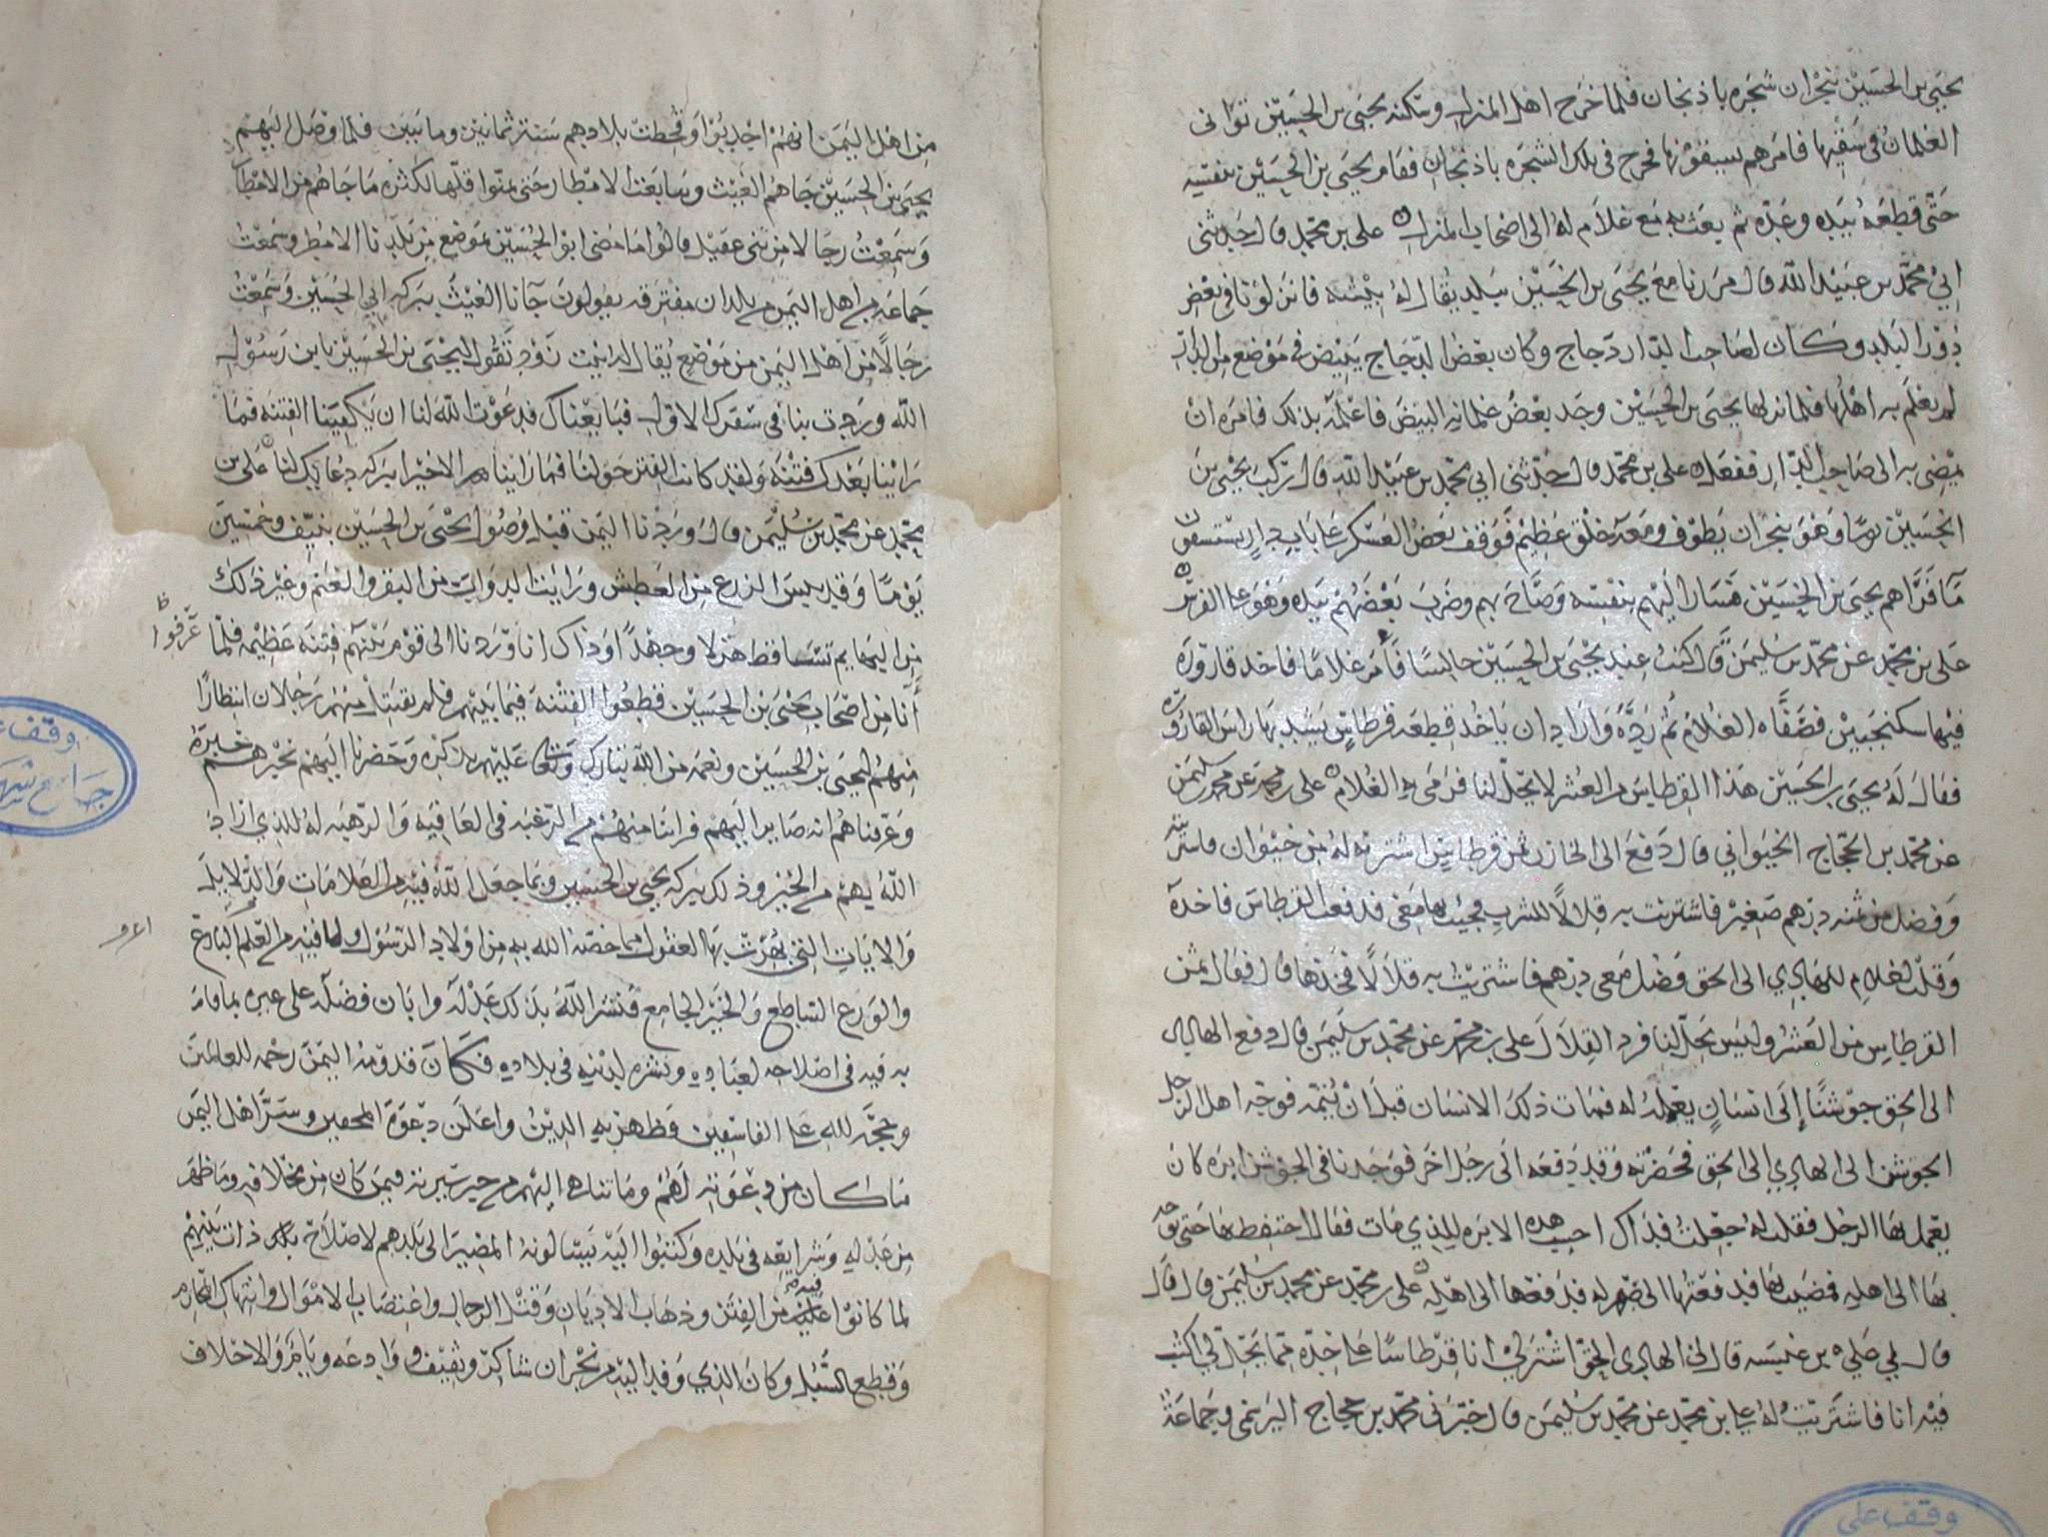 يحيى بن الحسين بنجران شجره باذنجان فلما خرج اهل المنزل وسكنه يحيى بن الحسين توانى
الغلمان في سقيها فامرهم بسقونها فخرج في تلك الشجره باذنجان فقام يحيى بن الحسين بنفسه
حتى قطعه بيده وعده ثم بعث به مع غلام له الى اصحاب المنزل علي بن محمد قال حدثني
ابي محمد بن عبيد الله قال مررنا مع يحيى بن الحسين ببلد يقال له فانزلونا في بعض
دور البلد وكان لصاحب الدار دجاج وكان بعض الدجاج يبيض في موضع من الدار
لم يعلم به اهلها فلما نزلها يحيى بن الحسين وجد بعض غلمانه البيض فاعلمه بذلك فامره ان
يمضي به الى صاحب الدار ففعل علي بن محمد قال حدثني ابي محمد بن عبيد الله قال ركب يحيى بن
الحسين يوما وهو بنجران يطوف ومعه خلق عظيم فوقف بعض العسكر على باب دار يستسقون
مآ فرآهم يحيى بن الحسين فسار اليهم بنفسه وصاح بهم وضرب بعضهم بيده وهو على الفرس
علي بن محمد عن محمد بن سليمن قال كنت عند يحيى بن الحسين جالسا فأمر غلاما فاخذ قارورة
فيها سكنجبين فصفاه الغلام ثم رده واراد ان ياخذ قطعه قرطاس يشد بها راس القاروره
فقال له يحيى بن الحسين هذا القرطاس من العشر لا يحل لنا فرمى به الغلام علي بن محمد عن محمد بن سليمن
عن محمد بن الحجاج الخيواني قال دفع الى الخازن ثمن قرطاس اشتريته له من خيوان فاشتريته
وفضل من ثمنه درهم صغير فاشتريت به قلالا للشرب فجيت بها معي فدفعت القرطاس فاخذه
وقلت لغلام للهادي الى الحق فضل معي درهم فاشتريت به قلالا فخذها قال فقال ثمن
القرطاس من العشر وليس يحل لنا فرد القلال علي بن محمد عن محمد بن سليمن قال دفع الهادي
الى الحق جوشنا إلى انسان يعمله له فمات ذلك الانسان قبل ان يتمه فوجه اهل الرجل
الجوشن الى الهادي الى الحق فحضرته وقد دفعه الى رجل اخر فوجدنا في الجوشن ابره كان
يعمل بها الرجل فقلت له جعلت فداك احسب هذه الابره للذي مات فقال احتفظ بها حتى توجه
بها الى اهله فمضيت بها فدفعتها الى صهر له فدفعها الى اهله علي بن محمد عن محمد بن سليمن قال قال
قال لي علي بن عنبسه قال لي الهادي الى الحق اشتر لي انا قرطاسا على حدة مما يحل لي اكتب
فيه انا فاشتريت له علي بن محمد عن محمد بن سليمن قال اخبرني محمد بن حجاج اليرسمي وجماعة
من اهل اليمن انهم اجدبوا وقحطت بلادهم سنة ثمانين وما يتين فلما وصل اليهم
يحيى بن الحسين جاهم الغيث وتتابعت الامطار حتى تمنوا قلتها لكثره ما جاهم من الامطار
وسمعت رجالا من بني عقيل قالوا ما مضى ابو الحسين بموضع من بلدنا الا مطر وسمعت
جماعه من اهل اليمن من بلدان مفترقه يقولون جآنا الغيث ببركه ابي الحسين وسمعت
رجالا من اهل اليمن من موضع يقال له اتيت تقول ليحيى بن الحسين يابن رسول
الله وردت بنا في سفرك الاول فبايعناك فدعوت الله لنا ان يكفينا الفتنه فما
راينا بعدك فتنة ولقد كانت الفتن حولنا فما راينا الا خيرا ببركه دعايك لنا علي بن
محمد عن محمد بن سليمن قال وردنا اليمن قبل وصول يحيى بن الحسين بنيف وخمسين
يوما وقد يبس الزرع من العطش ورايت الدواب من البقر والغنم وغير ذلك
من البهايم تتساقط هزلا وجهدا وذاك انا وردنا الى قوم بينهم فتنه عظيمه فلما عرفوا
أنا من اصحاب يحيى بن الحسين قطعوا الفتنة فيما بينهم فلم يقتتل منهم رجلان انتظارا
منهم ليحيى بن الحسين ونعمه من الله تبارك وتعالى عليهم بذكره وحضرنا اليهم نخبرهم خبره
وعرفناهم انه صاير اليهم فراينا منهم من الرغبه في العافيه والرهبه له للذي اراد
الله بهم من الخير وذلك ببركه يحيى بن الحسين وبما جعل الله فيه من العلامات والدلايل
والايات التي بهرت بها العقول مما خصه الله به من اولاد الرسول ولما فيه من العلم البارع
والورع الساطع والخير الجامع فنشر الله بذلك عدله وابان فضله على غيره بما قام
به فيه في اصلاحه لعباده ونشره لدينه في بلاده فكان قدومه اليمن رحمه للعالمين
وحجه لله على الفاسقين وظهر به الدين واعلن دعوة المحقين وسر اهل اليمن
ما كان من دعوته لهم وما تناهى اليهم من حسن سيرته فيمن كان من مخلافه وما ظهر
من عدله وشرايعه في بلده وكتبوا اليه يسالونه المصير الى بلدهم لاصلاح ذات بينهم
لما كانوا فيه من الفتن وذهاب الاديان وقتل الرجال واغتصاب الاموال وانتهاك المحارم
وقطع السبل وكان الذي وفد اليه من نجران شاكر وثقيف ووادعه ويام والاحلاف
وقف على
جامع شهارة
وقف على